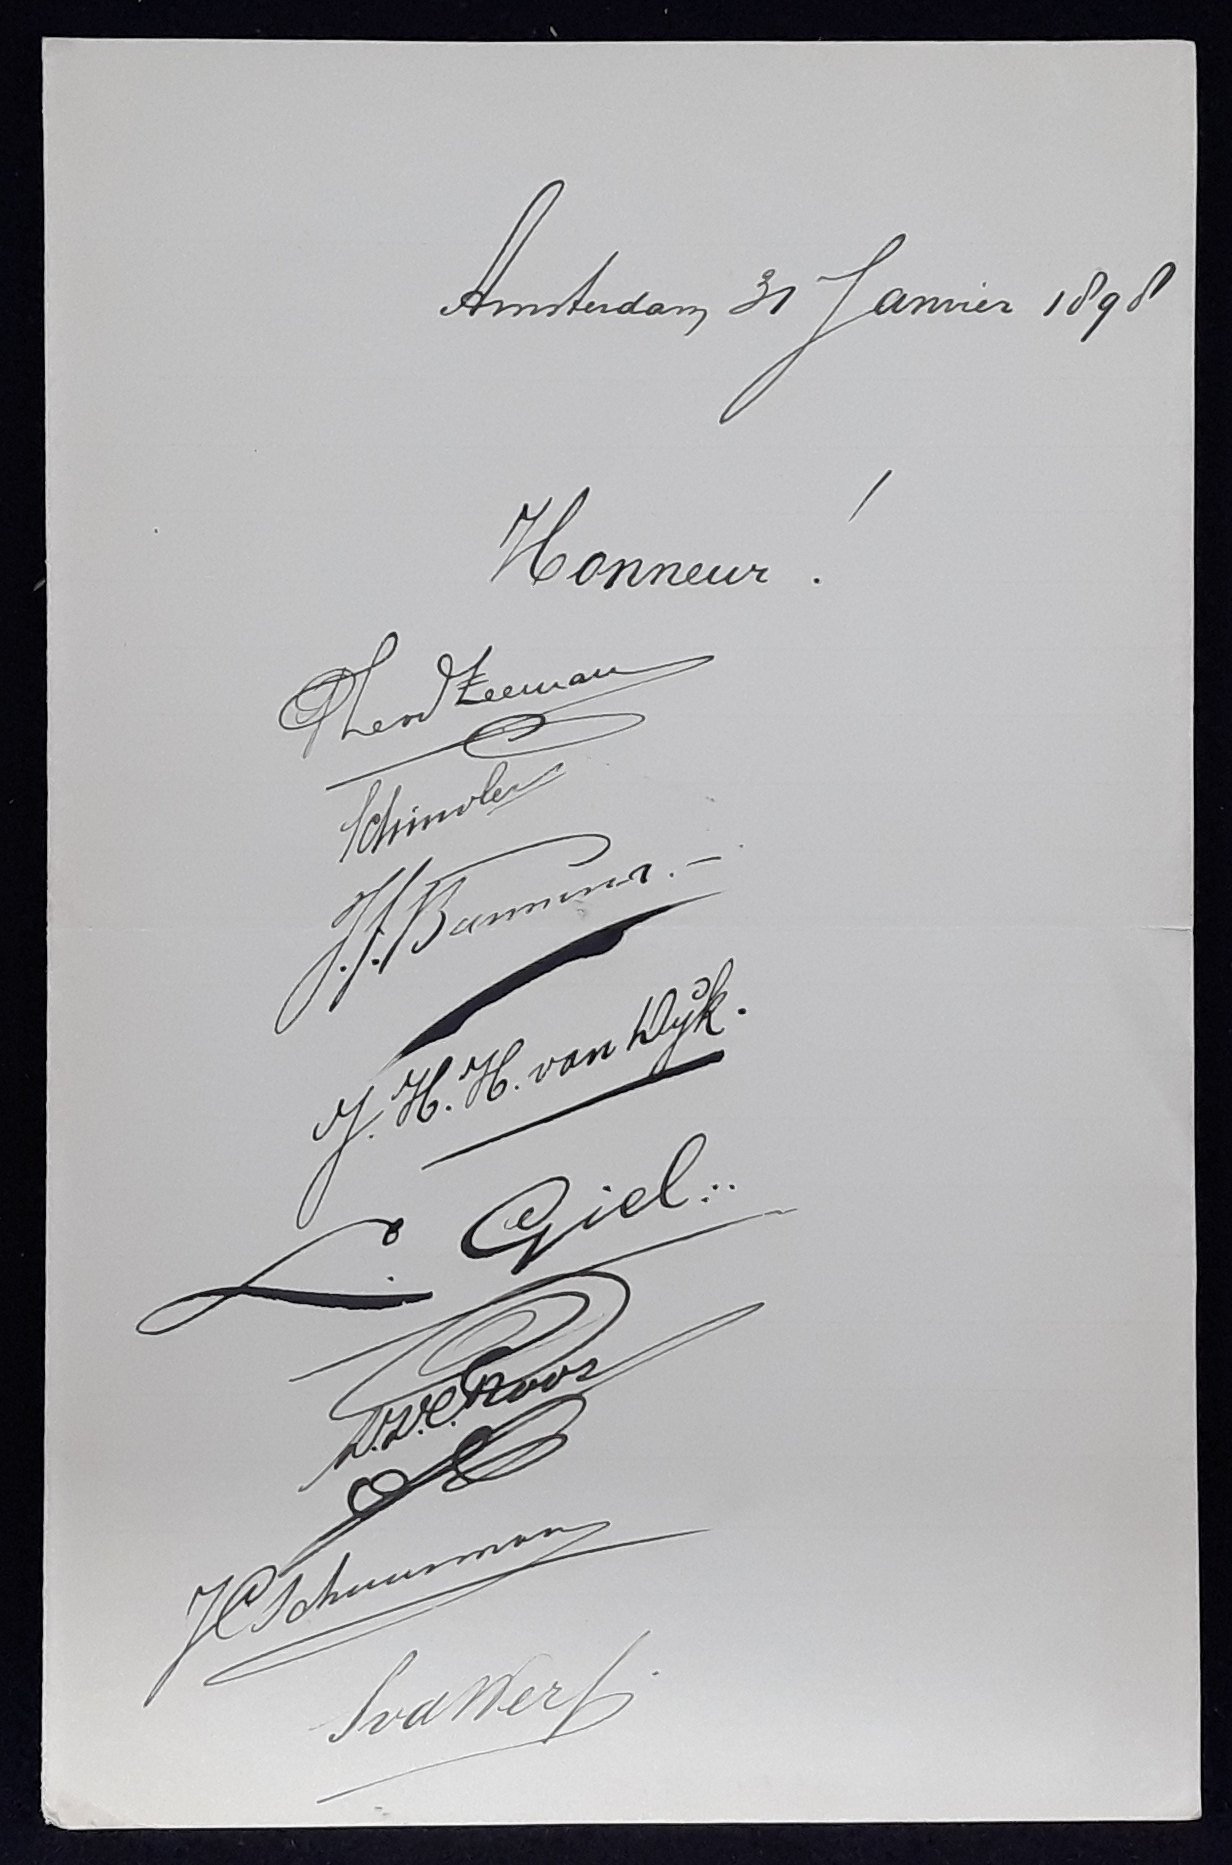 Amsterdam, 31 Janvier 1898
Honneur!
Theod Zeeman
Schindler
J. H. H. van Wijk.
L. Giel
Roos
JC Schuurman
SvdWerf